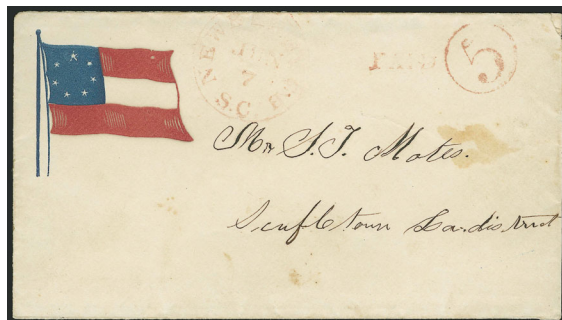 JUN
7
S.C.
PAID 5
Mr S. T. Motes.
Scuffletown La. district